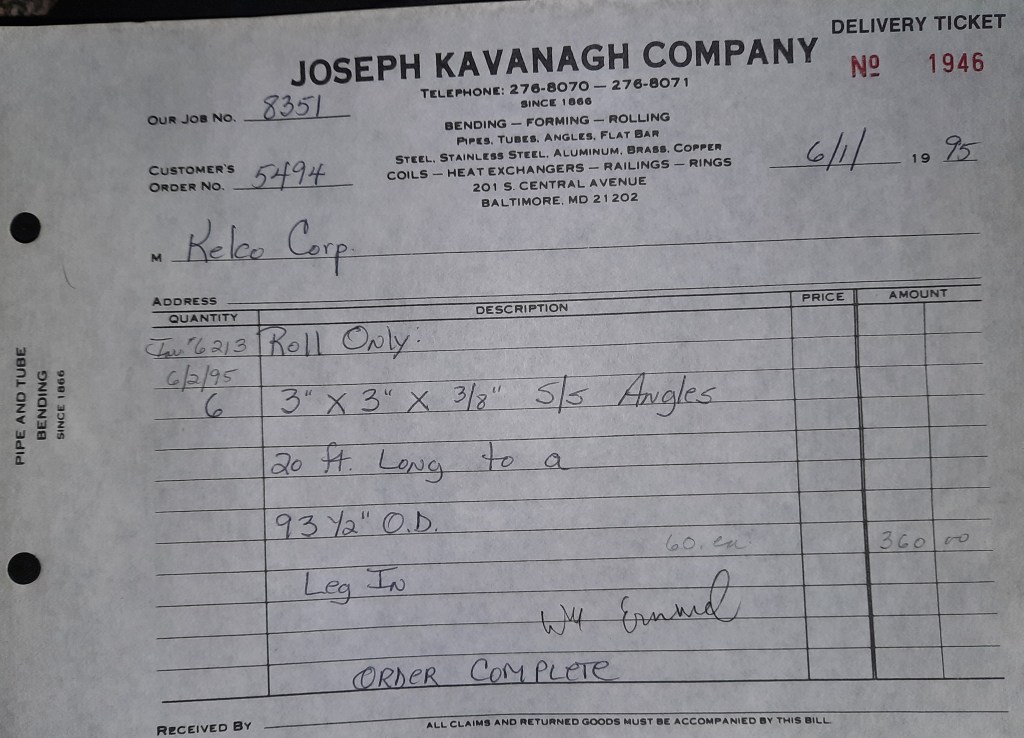 DELIVERY TICKET
JOSEPH KAVANAGH COMPANY
Nº 1946
TELEPHONE: 276-8070 — 276-8071
SINCE 1866
OUR JOB NO. 8351
BENDING — FORMING — ROLLING
PIPES, TUBES, ANGLES, FLAT BAR
STEEL, STAINLESS STEEL, ALUMINUM, BRASS, COPPER
COILS — HEAT EXCHANGERS — RAILINGS — RINGS
201 S. CENTRAL AVENUE
BALTIMORE, MD 21202
CUSTOMER'S
ORDER NO. 5494
6/1/ 19 95
M Kelco Corp.
ADDRESS
QUANTITY DESCRIPTION PRICE AMOUNT
Inv# 6213 Roll Only:
6/2/95
6 3" X 3" X 3/8" S/S Angles
20 ft. Long to a
93 1/2" O.D.
60. ea. 360 00
Leg In
ORDER COMPLETE
RECEIVED BY
ALL CLAIMS AND RETURNED GOODS MUST BE ACCOMPANIED BY THIS BILL
PIPE AND TUBE
BENDING
SINCE 1866